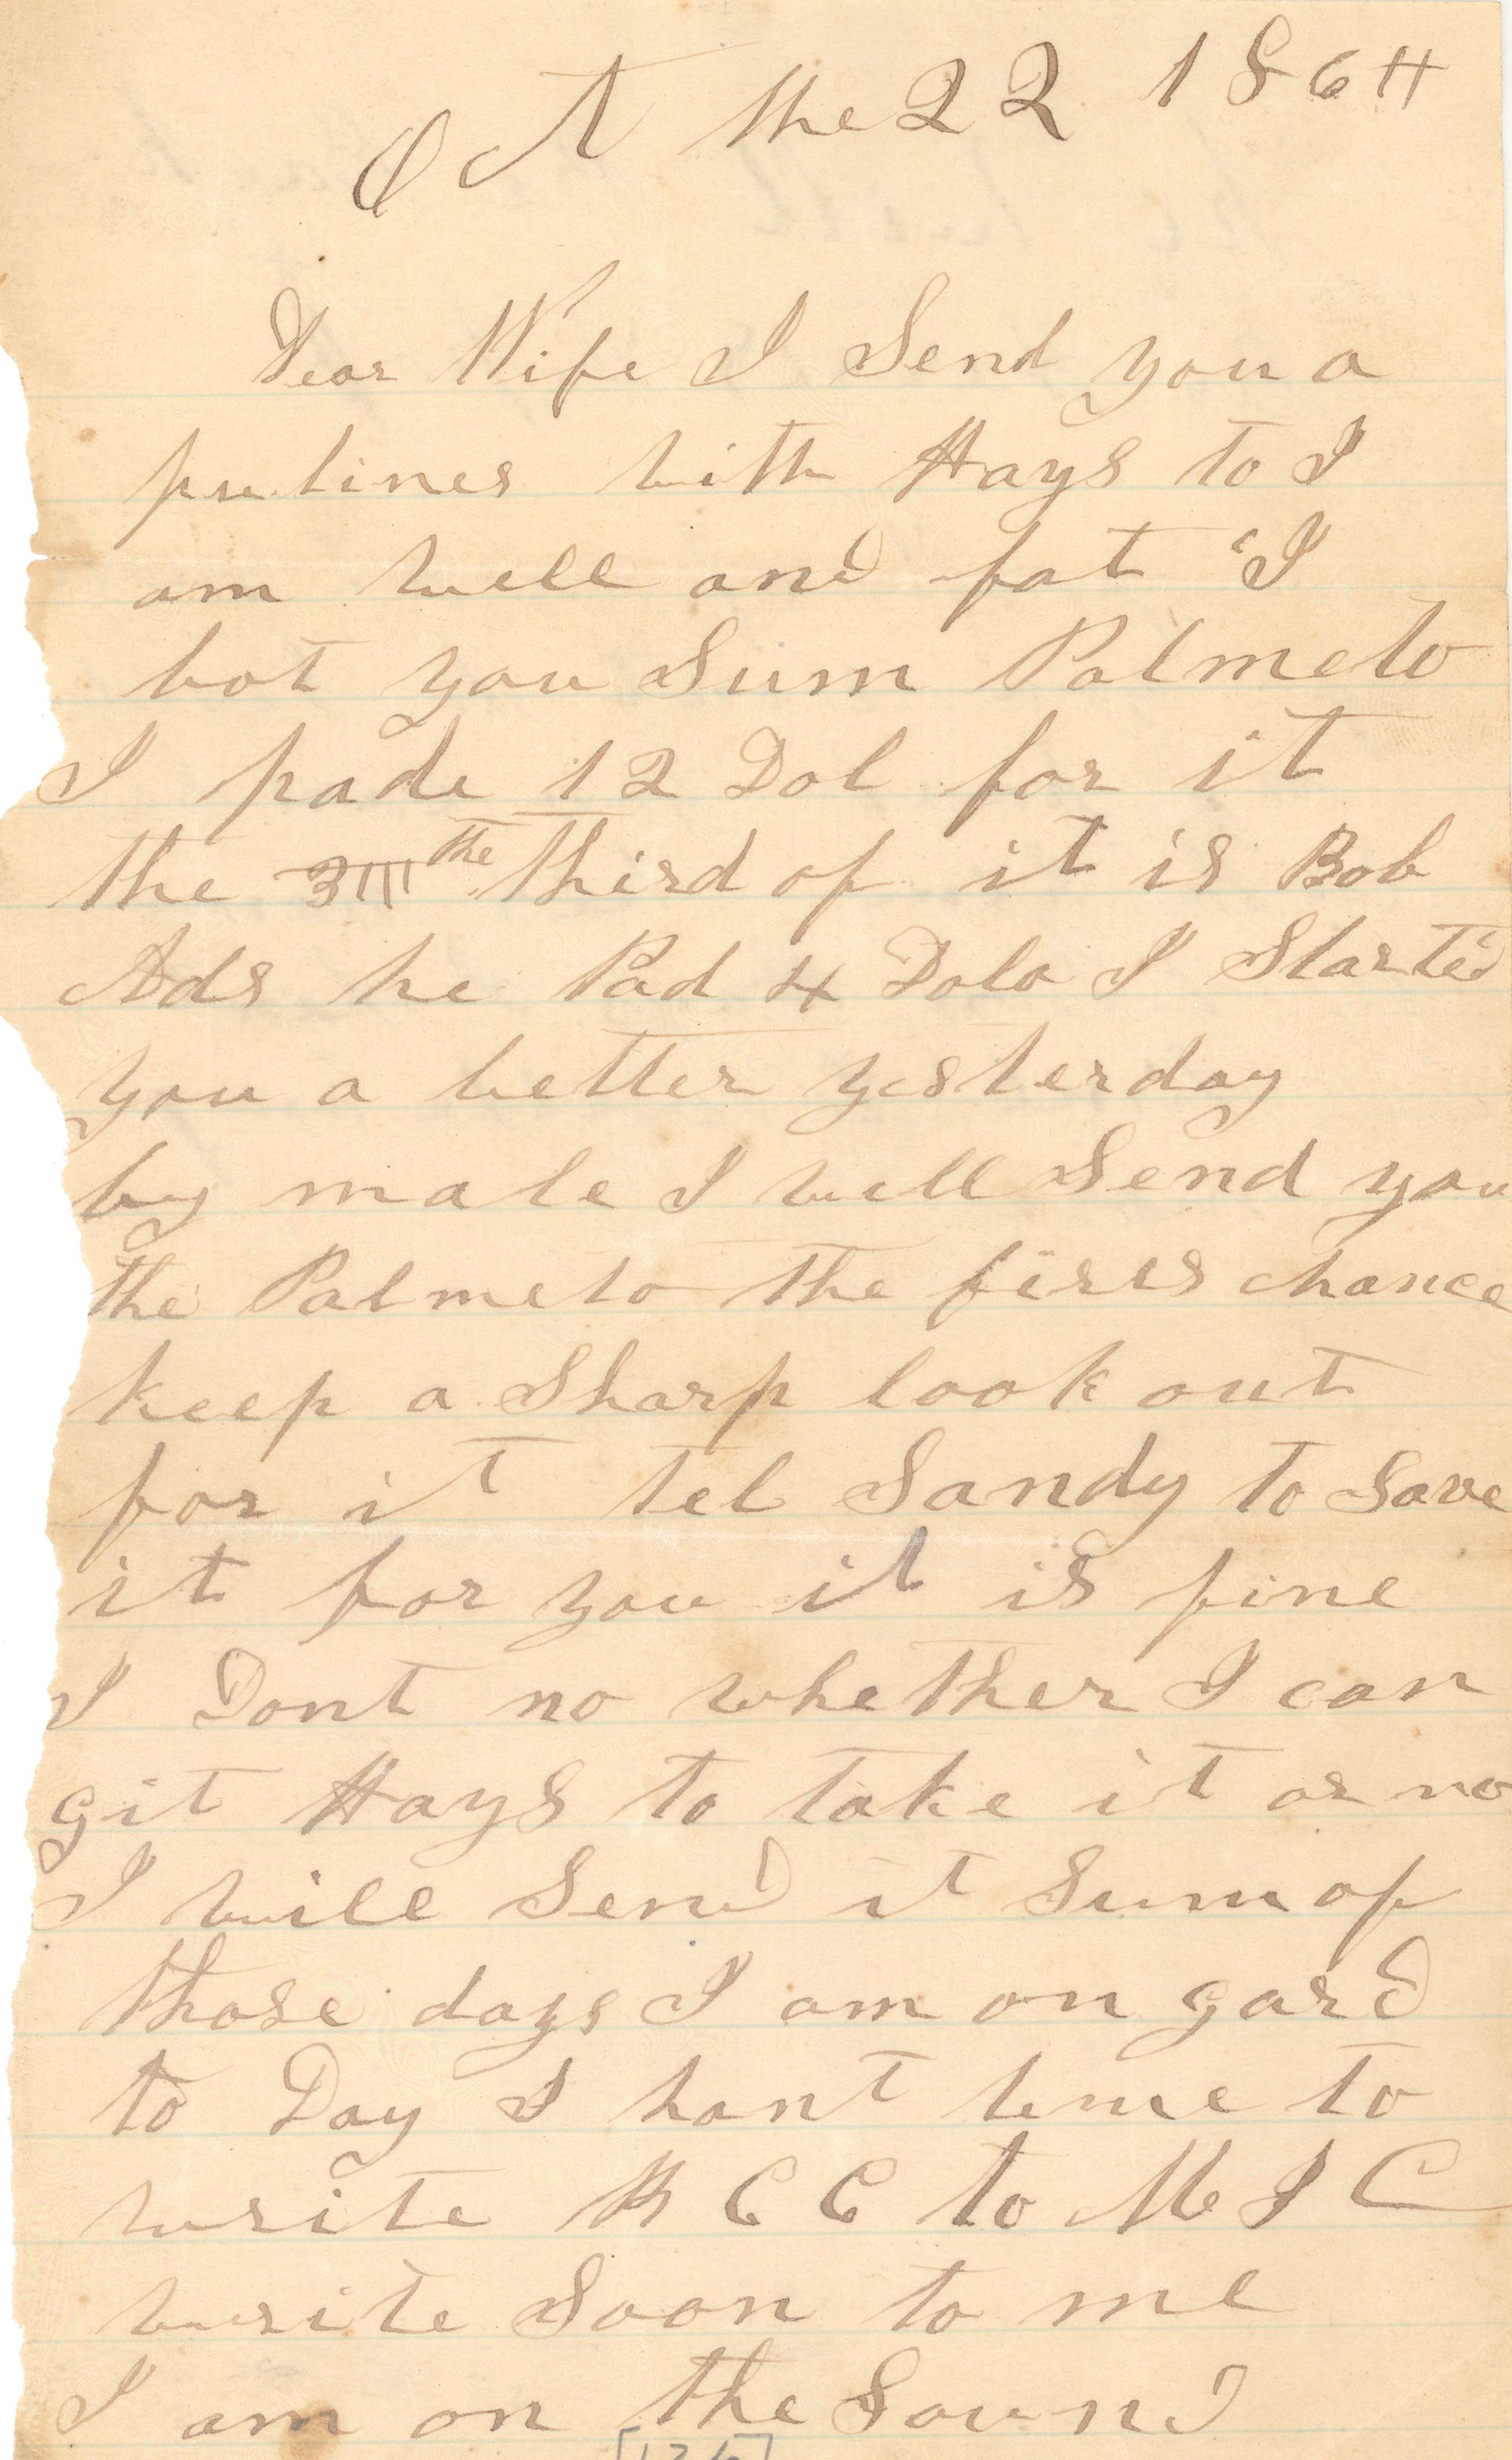 Oct the 22 1864
Dear Wife I Send you a
fu lines with Hays to I
am well and fat I
bot you Sum Palmeto
I pade 12 Dol for it
the the third of it is Bob
Ads he Pad 4 Dola I Started
you a letter yesterday
by male I will Send you
the Palmeto the first chance
keep a Sharp look out
for it tel Sandy to Save
it for you it is fine
I Dont no whether I can
git Hays to take it or no
I will Send it Sum of
those days I am on gard
to Day I hant time to
write C C to M I C
write Soon to me
I am on the Sound